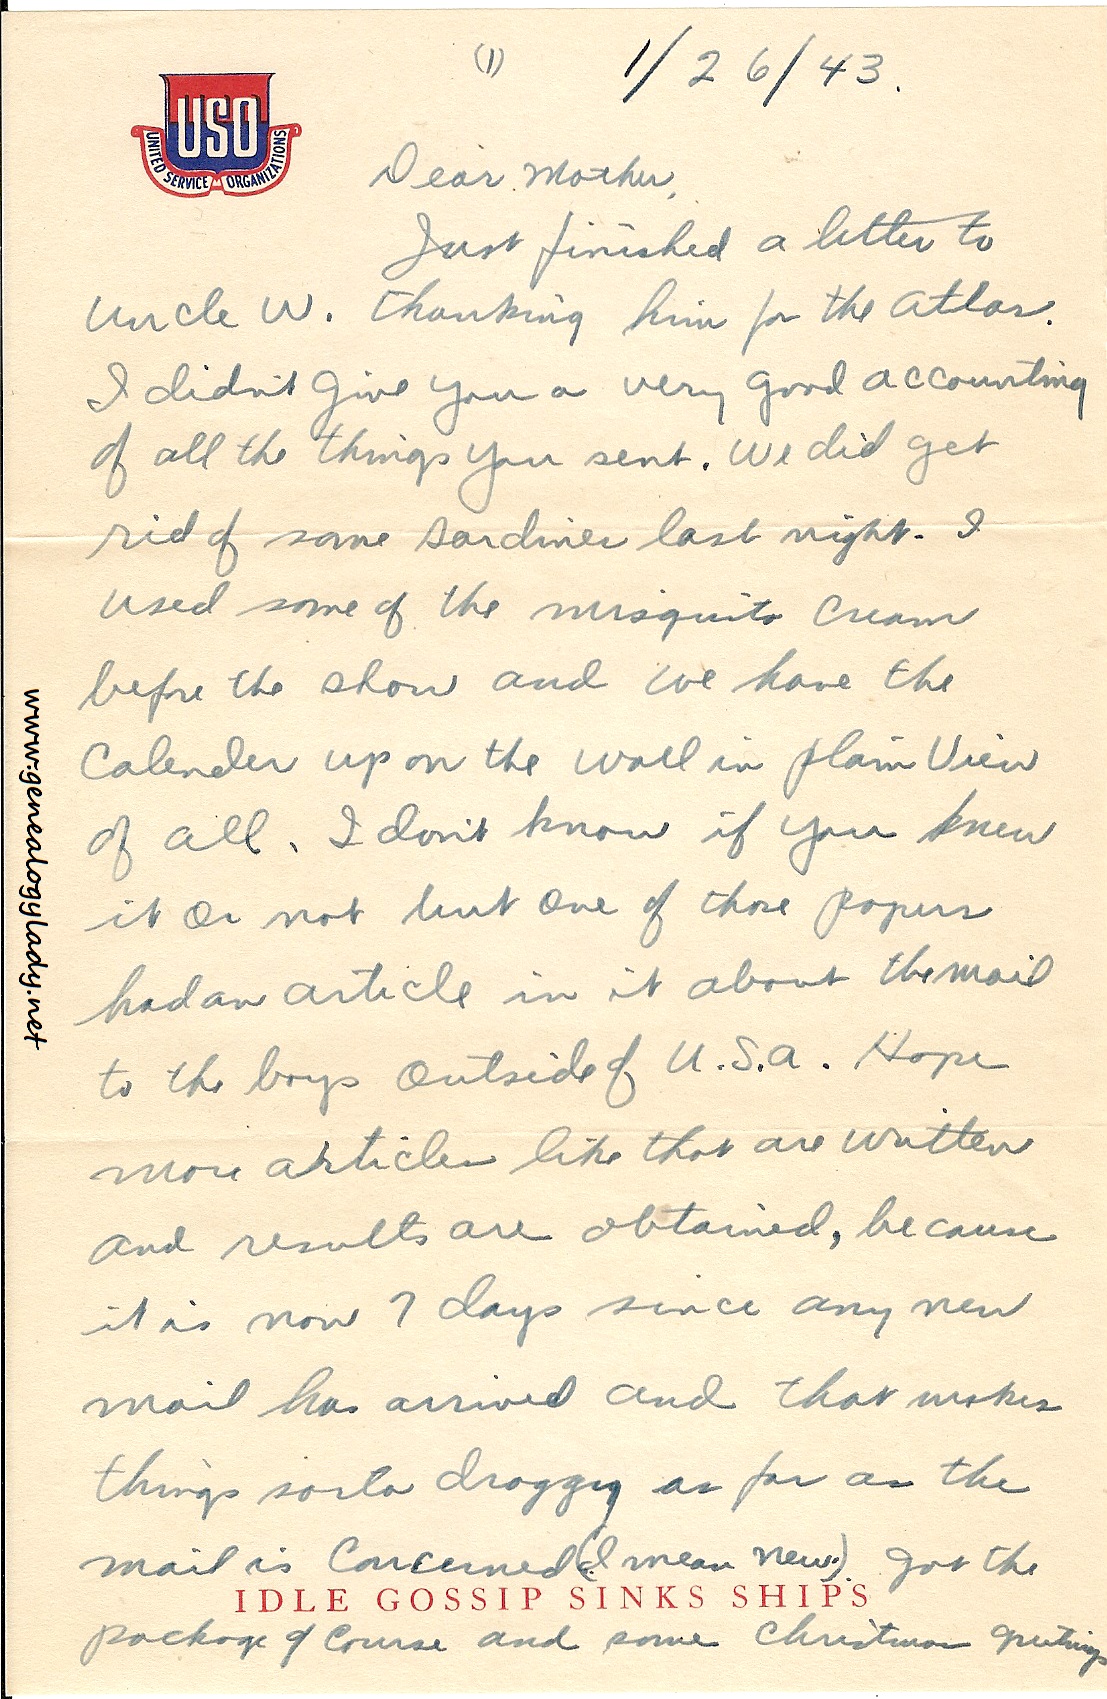 (1) 1/26/43.
USO
UNITED SERVICE ORGANIZATIONS
Dear Mother,
Just finished a letter to
Uncle W. thanking him for the atlas.
I didn't give you a very good accounting
of all the things you sent. We did get
rid of some sardines last night. I
used some of the misquito cream
before the show and we have the
Calender up on the wall in plain view
of all. I don't know if you knew
it or not but one of those papers
had an article in it about the mail
to the boys outside of U.S.A. Hope
more articles like that are written
and results are obtained, because
it is now 7 days since any new
mail has arrived and that makes
things sorta draggy as far as the
mail is concerned (I mean new). Got the
IDLE GOSSIP SINKS SHIPS
package of course and some Christmas greetings
www.genealogylady.net